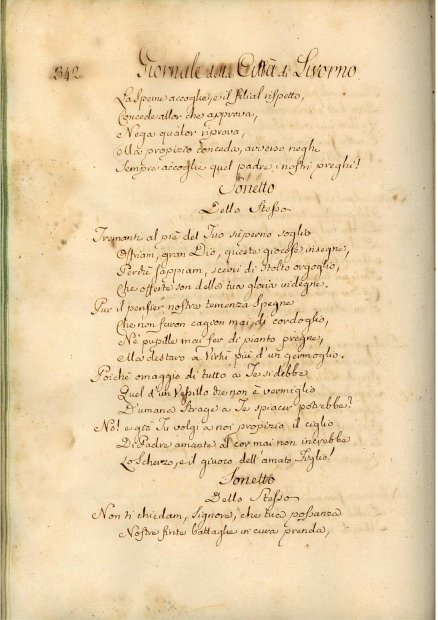 342. Giornale della Città di Livorno
La Speme accoglie, e il filial rispetto,
Concede allor che approva,
Nega qualor riprova,
Ma propizio conceda, avverso neghi
Sempre accoglie quel padre i nostri preghi!
Sonetto
Dello Stesso
Tremanti al piè del Tuo superno soglio
Offriam, gran Dio, queste giocose insegne,
Perchè sappiam, scevri di stolto orgoglio,
Che offerte son della tua gloria indegne.
Pur il pensier nostra temenza spegne
Che non furon cagion mai di cordoglio,
Nè pupille mai fer di pianto pregne,
Ma destaro a Virtù più d'un germoglio.
Poichè omaggio di tutto a Te si debbe
Quel d'un Vessillo che non è vermiglio
D'umana Strage a Te spiacer potrebbe?
No! e già Tu volgi a noi propizio il ciglio
Di Padre amante al cor mai non increbbe
Lo Scherzo, e il giuoco dell'amato Figlio!
Sonetto
Dello Stesso
Non ti chiedam, Signore, che tua possanza
Nostre finte battaglie in cura prenda,